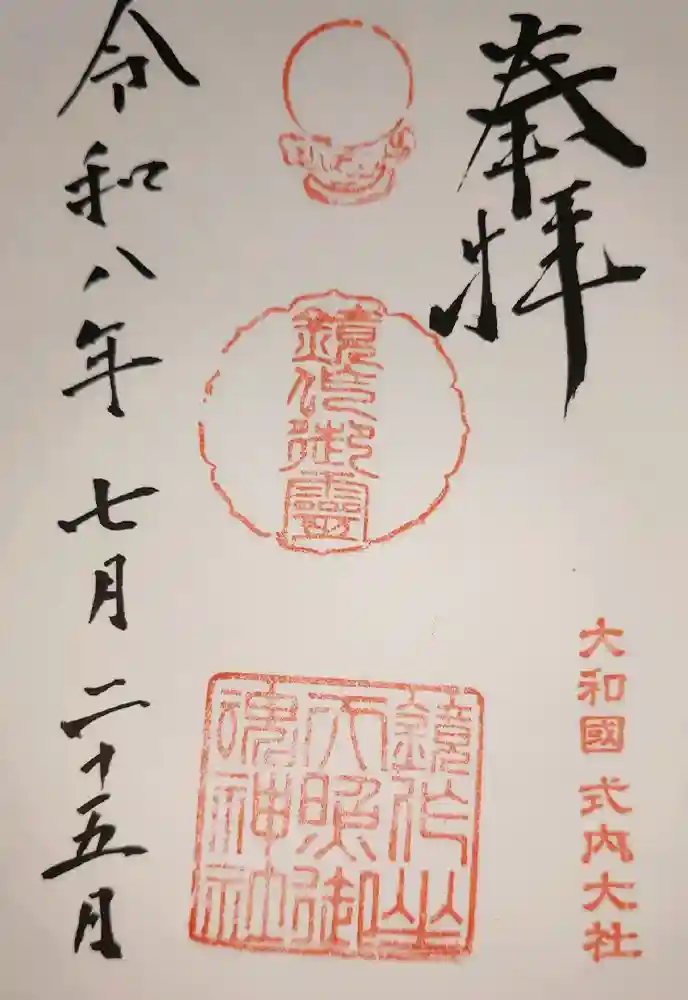 奉拝
大和國 式内大社
鏡作御霊
鏡作坐
天照御
魂神社
令和八年 七月 二十五日